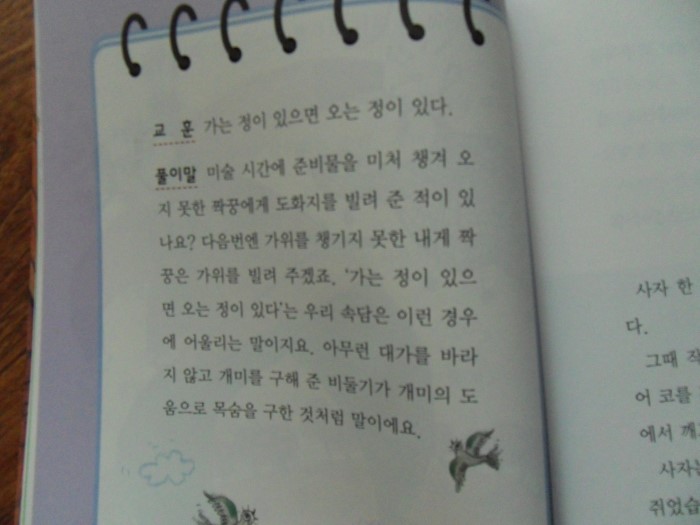 교 훈 가는 정이 있으면 오는 정이 있다.
풀이말 미술 시간에 준비물을 미처 챙겨 오
지 못한 짝꿍에게 도화지를 빌려 준 적이 있
나요? 다음번엔 가위를 챙기지 못한 내게 짝
꿍은 가위를 빌려 주겠죠. '가는 정이 있으
면 오는 정이 있다'는 우리 속담은 이런 경우
에 어울리는 말이지요. 아무런 대가를 바라
지 않고 개미를 구해 준 비둘기가 개미의 도
움으로 목숨을 구한 것처럼 말이에요.
사자 한
다.
그때 작
어 코를
에서 깨
사자는
쥐었습